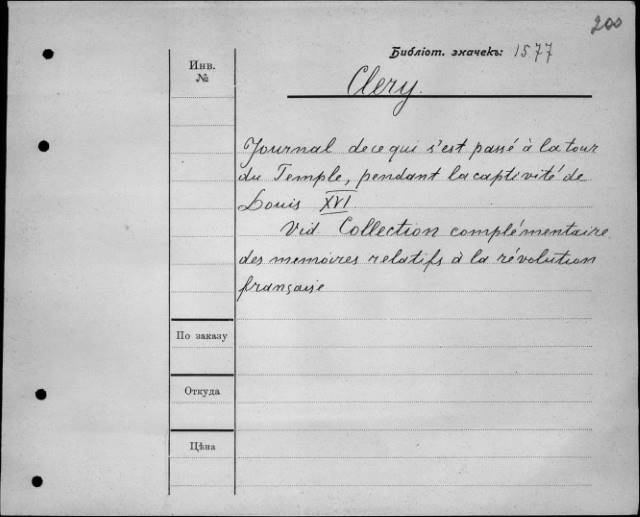 200
Библіот. значекъ: 1577
Инв.
№
Clery.
Journal de ce qui s'est passé à la tour
du Temple, pendant la captivité de
Louis XVI.
Vid Collection complémentaire
des memoires relatifs à la révolution
française
По заказу
Откуда
Цѣна